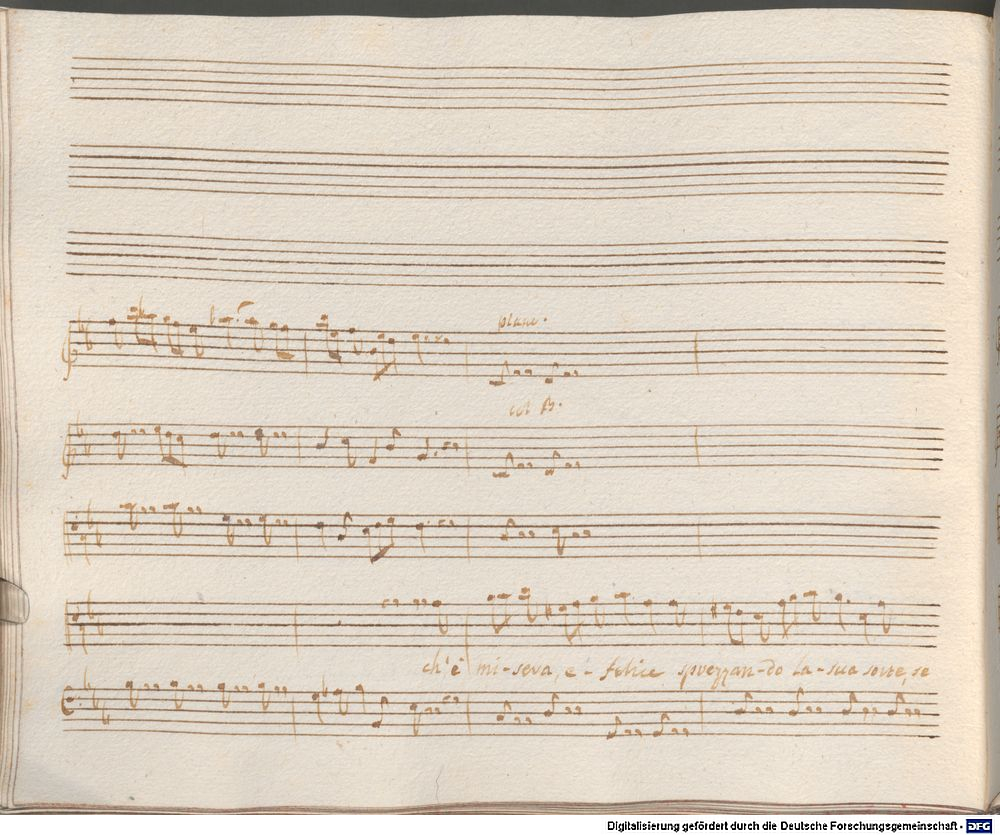 piano.
col B.
ch'è mi-sera, e - felice sprezzan-do la-sua sorte, se
Digitalisierung gefördert durch die Deutsche Forschungsgemeinschaft - DFG